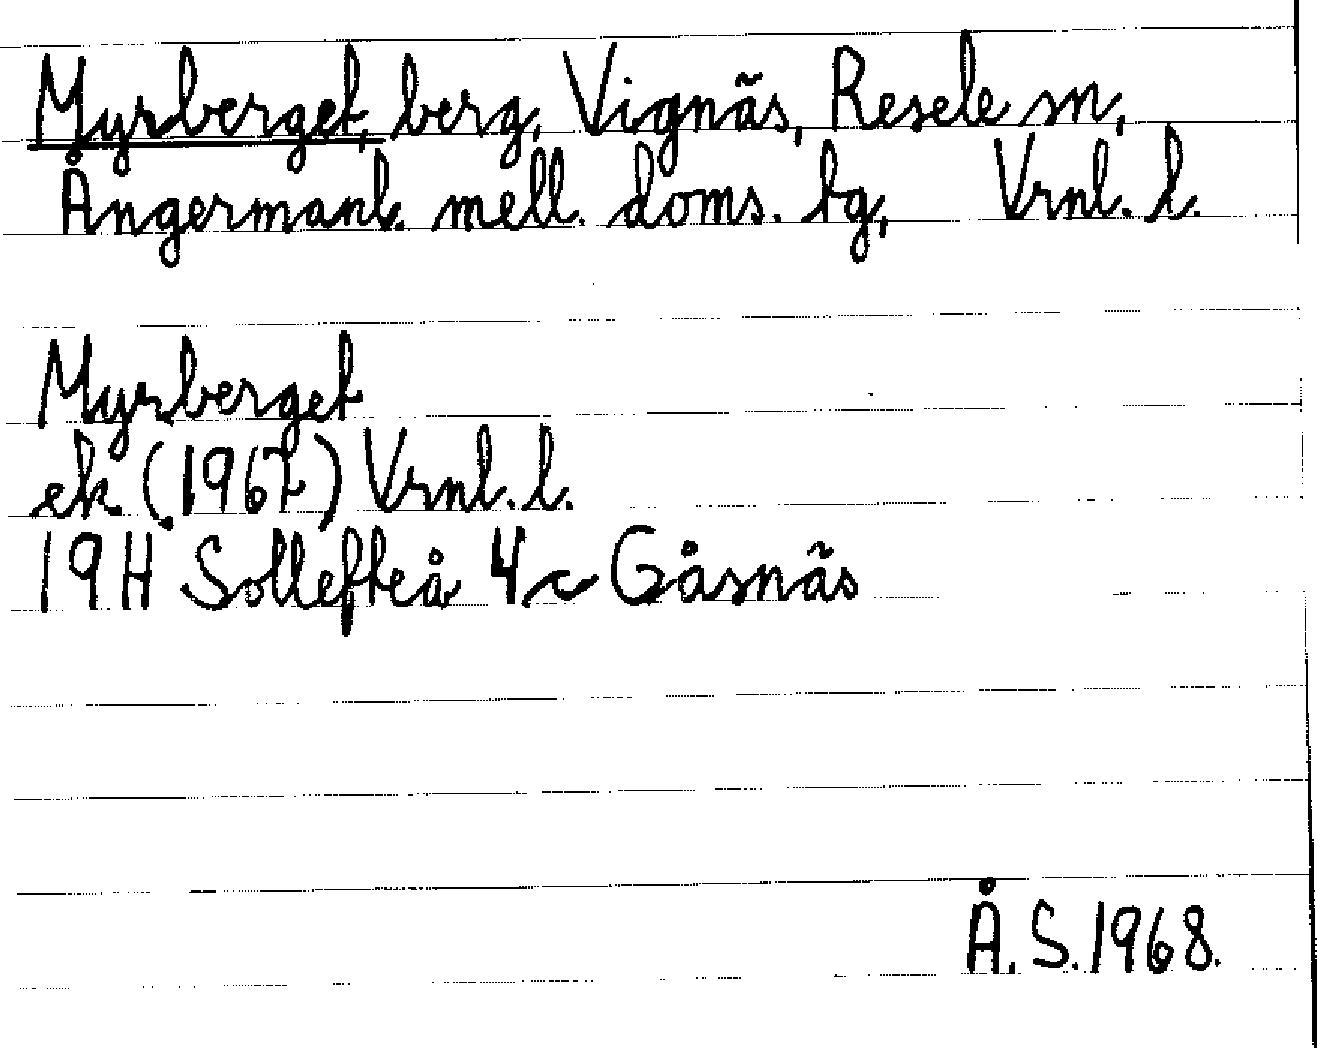 Myrberget, berg, Vignäs, Resele sn,
Ångermanl. mell. doms. tg, Vrnl. l.
Myrberget
ek (1967) Vrnl. l.
19H Sollefteå 4c Gåsnäs
Å. S. 1968.